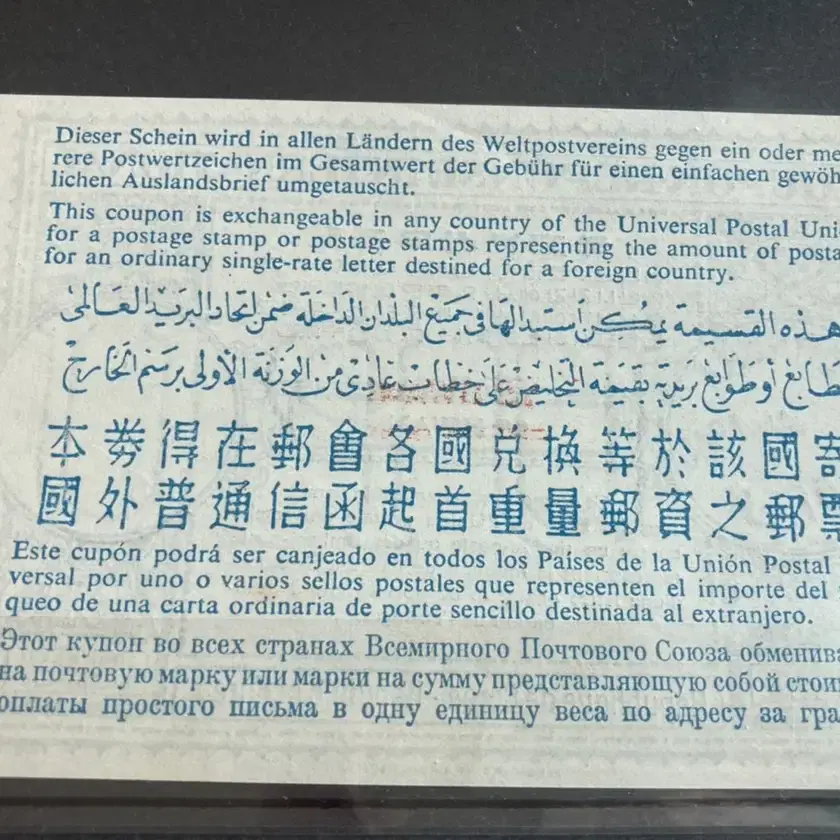 Dieser Schein wird in allen Ländern des Weltpostvereins gegen ein oder me
rere Postwertzeichen im Gesamtwert der Gebühr für einen einfachen gewöh
lichen Auslandsbrief umgetauscht.
This coupon is exchangeable in any country of the Universal Postal Uni
for a postage stamp or postage stamps representing the amount of posta
for an ordinary single-rate letter destined for a foreign country.
هذه القسيمة يمكن استبدالها في جميع البلدان الداخلة ضمن اتحاد البريد العالمى
طابع أو طوابع بريدية بقيمة التخليص على خطاب عادى من الوزنة الأولى برسم الخارج
本券得在郵會各國兌換等於該國寄
國外普通信函起首重量郵資之郵票
Este cupón podrá ser canjeado en todos los Países de la Unión Postal
versal por uno o varios sellos postales que representen el importe del
queo de una carta ordinaria de porte sencillo destinada al extranjero.
Этот купон во всех странах Всемирного Почтового Союза обменива
на почтовую марку или марки на сумму представляющую собой стои
оплаты простого письма в одну единицу веса по адресу за гра